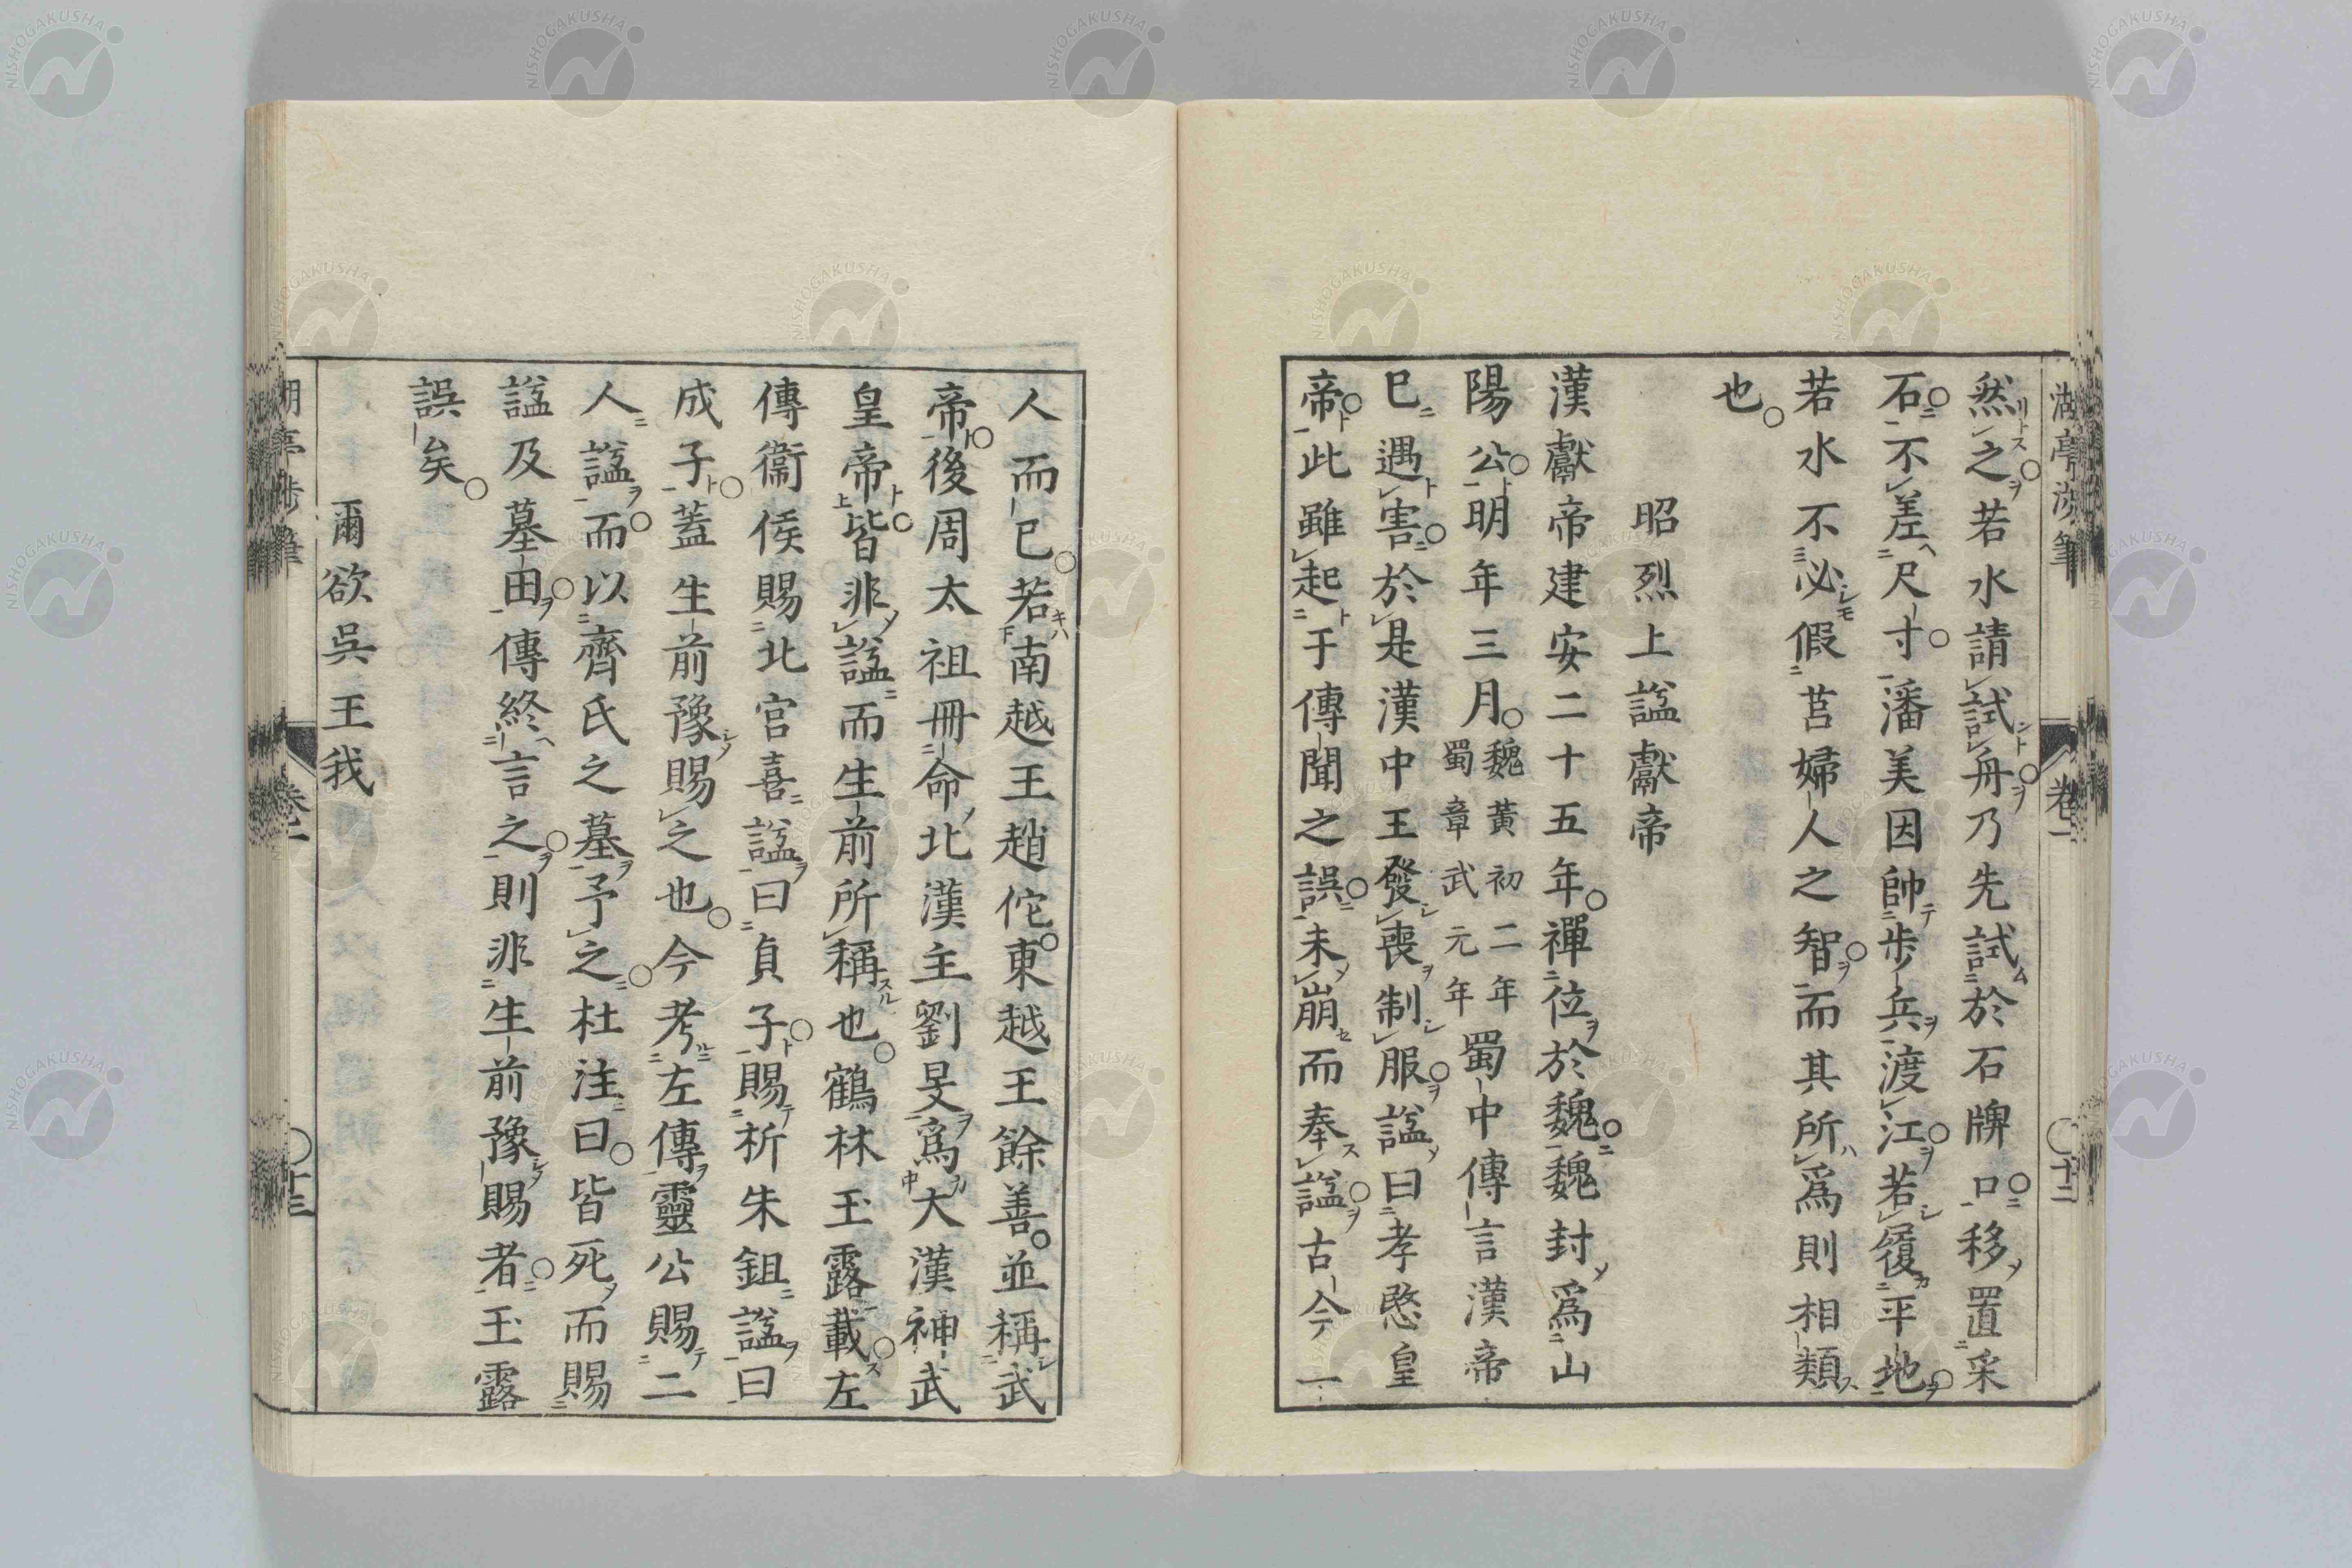 然之若水請試舟乃先試於石牌口移置采
石不差尺寸潘美因帥步兵渡江若履平地
若水不必假莒婦人之智而其所爲則相類
也
昭烈上謚獻帝
漢獻帝建安二十五年禪位於魏魏封爲山
陽公明年三月魏黃初二年蜀章武元年蜀中傳言漢帝
已遇害於是漢中王發喪制服謚曰孝愍皇
帝此雖起于傳聞之誤未崩而奉謚古今一
人而已若南越王趙佗東越王餘善並稱武
帝後周太祖冊命北漢主劉旻爲大漢神武
皇帝皆非謚而生前所稱也鶴林玉露載左
傳衞侯賜北宮喜謚曰貞子賜析朱鉏謚曰
成子蓋生前豫賜之也今考左傳靈公賜二
人謚而以齊氏之墓予之杜注曰皆死而賜
謚及墓田傳終言之則非生前豫賜者玉露
誤矣
爾欲吳王我
卷一
十二
十三
NISHOGAKUSHA